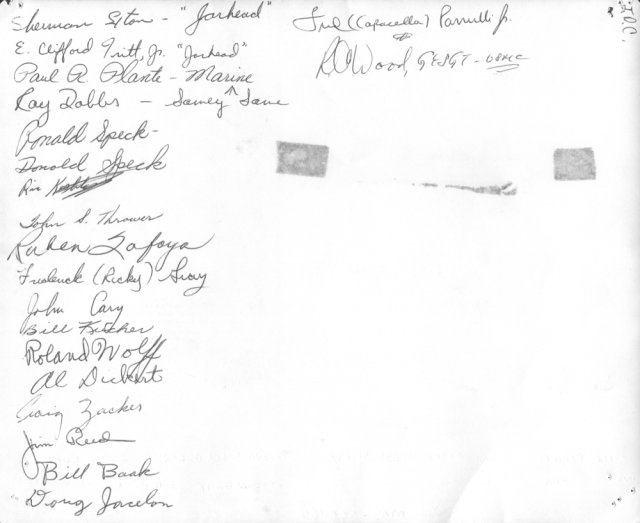 Sherman Sitton - "Jarhead"
E. Clifford Tritt, Jr. "Jarhead"
Paul A Plante - Marine
Ray Dobbs - Sawey Sane
Ronald Speck -
Donald Speck
John S. Thrower
Ruben Lafoya
Frederick (Ricky) Gray
John Cary
Bill Fischer
Roland Wolff
Al Dickert
Craig Zacker
Jim Reed
Bill Baak
Doug Jacelon
(Capacella) Parrulli Jr.
RO Wood, GYSGT - USMC